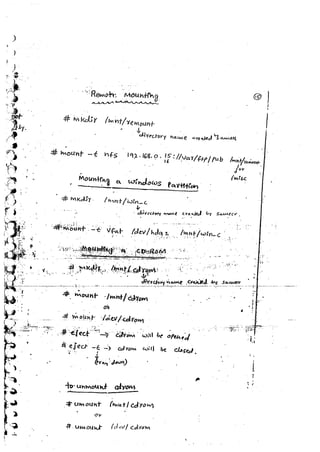 Remote Mounting
# mkdir /mnt/remount
directory name created
# mount -t nfs 192.168.0.15://var/ftp/pub /mnt/
or
/misc
Mounting a windows Partition
# mkdir /mnt/win_c
directory name created by
# mount -t vfat /dev/hda2 /mnt/win_c
Mounting a CD-ROM
# mkdir /mnt/cdrom
directory name created by
# mount /mnt/cdrom
or
# mount /dev/cdrom
# eject → cdrom will be opened
# eject -t → cdrom will be closed.
to unmount cdrom
# umount /mnt/cdrom
or
# umount /dev/cdrom